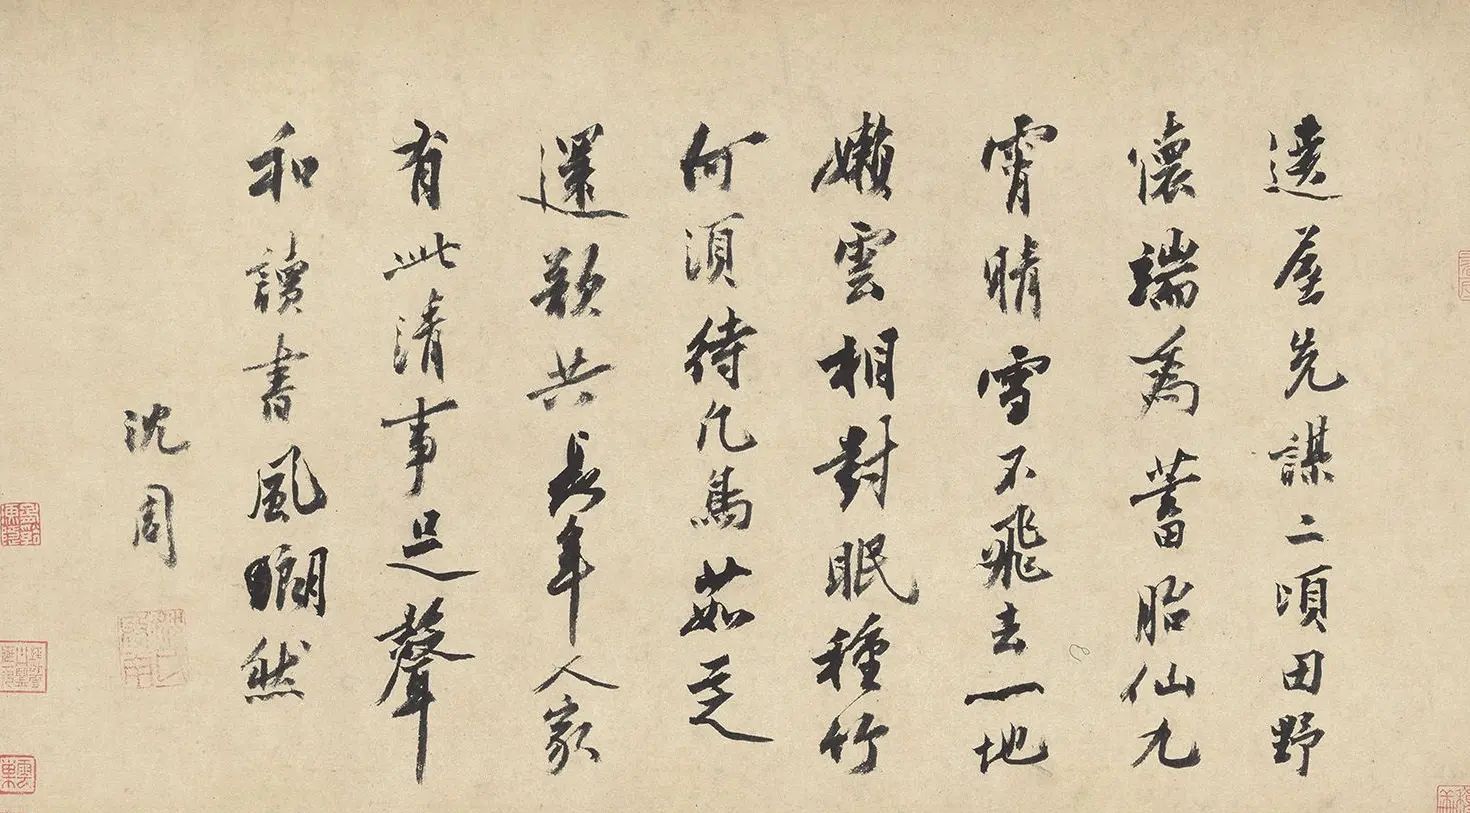 遶屋先謀二頃田野
懷端為蓄胎仙九
霄晴雪不飛去一地
嬾雲相對眠種竹
何須待凡鳥茹芝
還欲共長年人家
有此清事足聲
和讀書風然
沈周